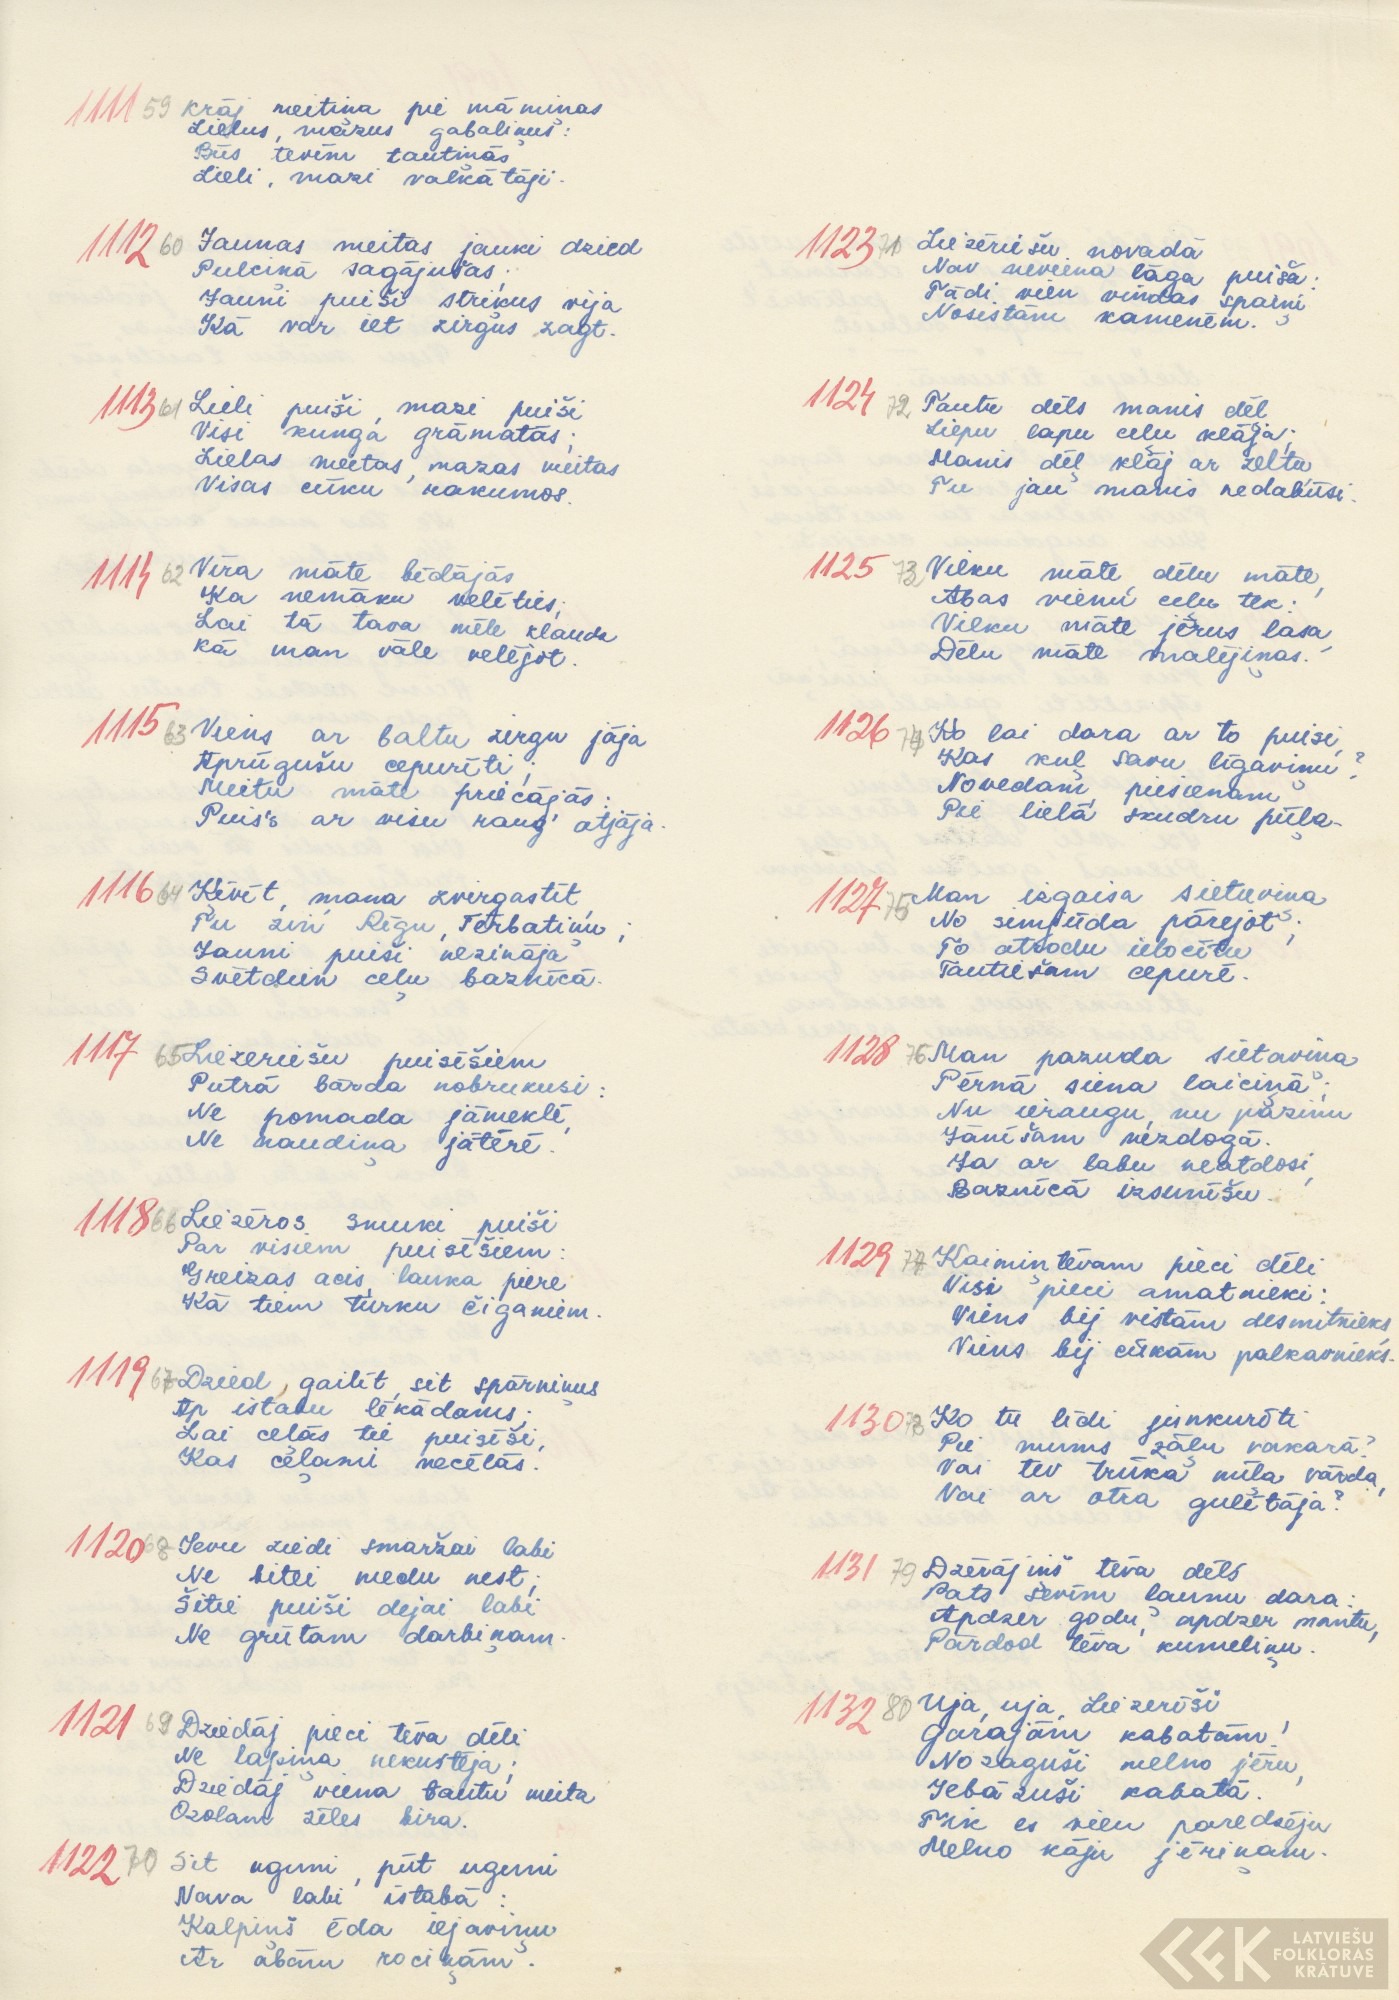 1111 59 Krāj meitiņa pie māmiņas
Lielus, mazus gabaliņus:
Būs tevīm tautiņās
Lieli, mazi valkātāji.
1112 60 Jaunas meitas jauki dzied
Pulciņā sagājušas;
Jauni puiši strikus vija
Kā var iet zirgus zagt.
1113 61 Lieli puiši, mazi puiši
Visi kunga grāmatās;
Lielas meitas, mazas meitas
Visas cūku kakumos.
1114 62 Vīra māte bēdājās
Ka nemāku velēties;
Lai tā tava mēle klaudz
Kā man vāle velējot.
1115 63 Viens ar baltu zirgu jāja
Aprūgušu cepurīti;
Meitu māte priecājās:
Puis's ar visu raug' atjāja.
1116 64 Ķēvīt, mana zvirgastīt,
Tu zin' Rīgu, Tērbatiņu;
Jauni puiši nezināja
Svētdien ceļu baznīcā.
1117 65 Liezeriešu puisīšiem
Putrā bārda nobrukusi:
Ne pomada jāmeklē,
Ne naudiņa jātērē.
1118 66 Liezēros smuki puiši
Par visiem puisīšiem:
Greizas acis, lauka piere
Kā tiem turku čigāniem.
1119 67 Dzied, gailīt, sit spārniņus
Ap istabu lēkādams;
Lai ceļās tie puisīši,
Kas ceļami necēlās.
1120 68 Ievu ziedi smaržai labi
Ne bitei medu nest;
Šitie puiši dejai labi
Ne grūtam darbiņam.
1121 69 Dziedāj pieci tēva dēli
Ne lapiņa nekustēja;
Dziedāj viena tautu meita
Ozolam zīles bira.
1122 70 Sit uguni, pūt uguni
Nava labi istabā:
Kalpiņš ēda iejaviņu
Ar abām rociņām.
1123 71 Liezēriešu novadā
Nav neviena lāga puiša:
Tādi vien vindas spaiņi
Nosistām kamenēm.
1124 72 Tautu dēls manis dēļ
Liepu lapu ceļu klāja;
Manis dēļ klāj ar zeltu
Tu jau manis nedabūsi.
1125 73 Vilku māte, dēlu māte,
Abas vienu ceļu tek:
Vilku māte jērus lasa,
Dēlu māte malējiņas.
1126 74 Ko lai dara ar to puisi,
Kas kuļ savu līgaviņu?
Novedam, piesienam
Pie lielā skudru pūļa.
1127 75 Man izgaisa sietaviņa
No simpūda pārejot;
To atrodu ielocītu
Tautiešam cepurē.
1128 76 Man pazuda sietaviņa
Pērnā siena laiciņā;
Nu ieraugu, nu pazinu
Jānīšam nēzdogā.
Ja ar labu neatdosi,
Baznīcā izsunīšu.
1129 77 Kaimiņtēvam pieci dēli
Visi pieci amatnieki:
Viens bij vistām desmitnieks,
Viens bij cūkām palkavnieks.
1130 78 Ko tu līdi, junkurīti
Pie mums zāļu vakarā?
Vai tev trūka mīļa vārda,
Vai ar otra gulētāja?
1131 79 Dzērājiņš tēva dēls
Pats sevīm ļaunu dara:
Apdzer godu, apdzer mantu,
Pārdod tēva kumeliņu.
1132 80 Uja, uja, Liezerīši
Garajām kabatām!
Nozaguši melno jēru,
Iebāzuši kabatā.
Tik es vien paredzēju
Melno kāju jēriņam.
LATVIEŠU
FOLKLORAS
KRĀTUVE